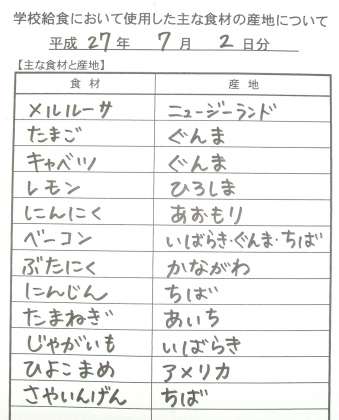 学校給食において使用した主な食材の産地について
平成 27 年 7 月 2 日分
【主な食材と産地】
食材 産地
メルルーサ ニュージーランド
たまご ぐんま
キャベツ ぐんま
レモン ひろしま
にんにく あおもり
ベーコン いばらき・ぐんま・ちば
ぶたにく かながわ
にんじん ちば
たまねぎ あいち
じゃがいも いばらき
ひよこまめ アメリカ
さやいんげん ちば